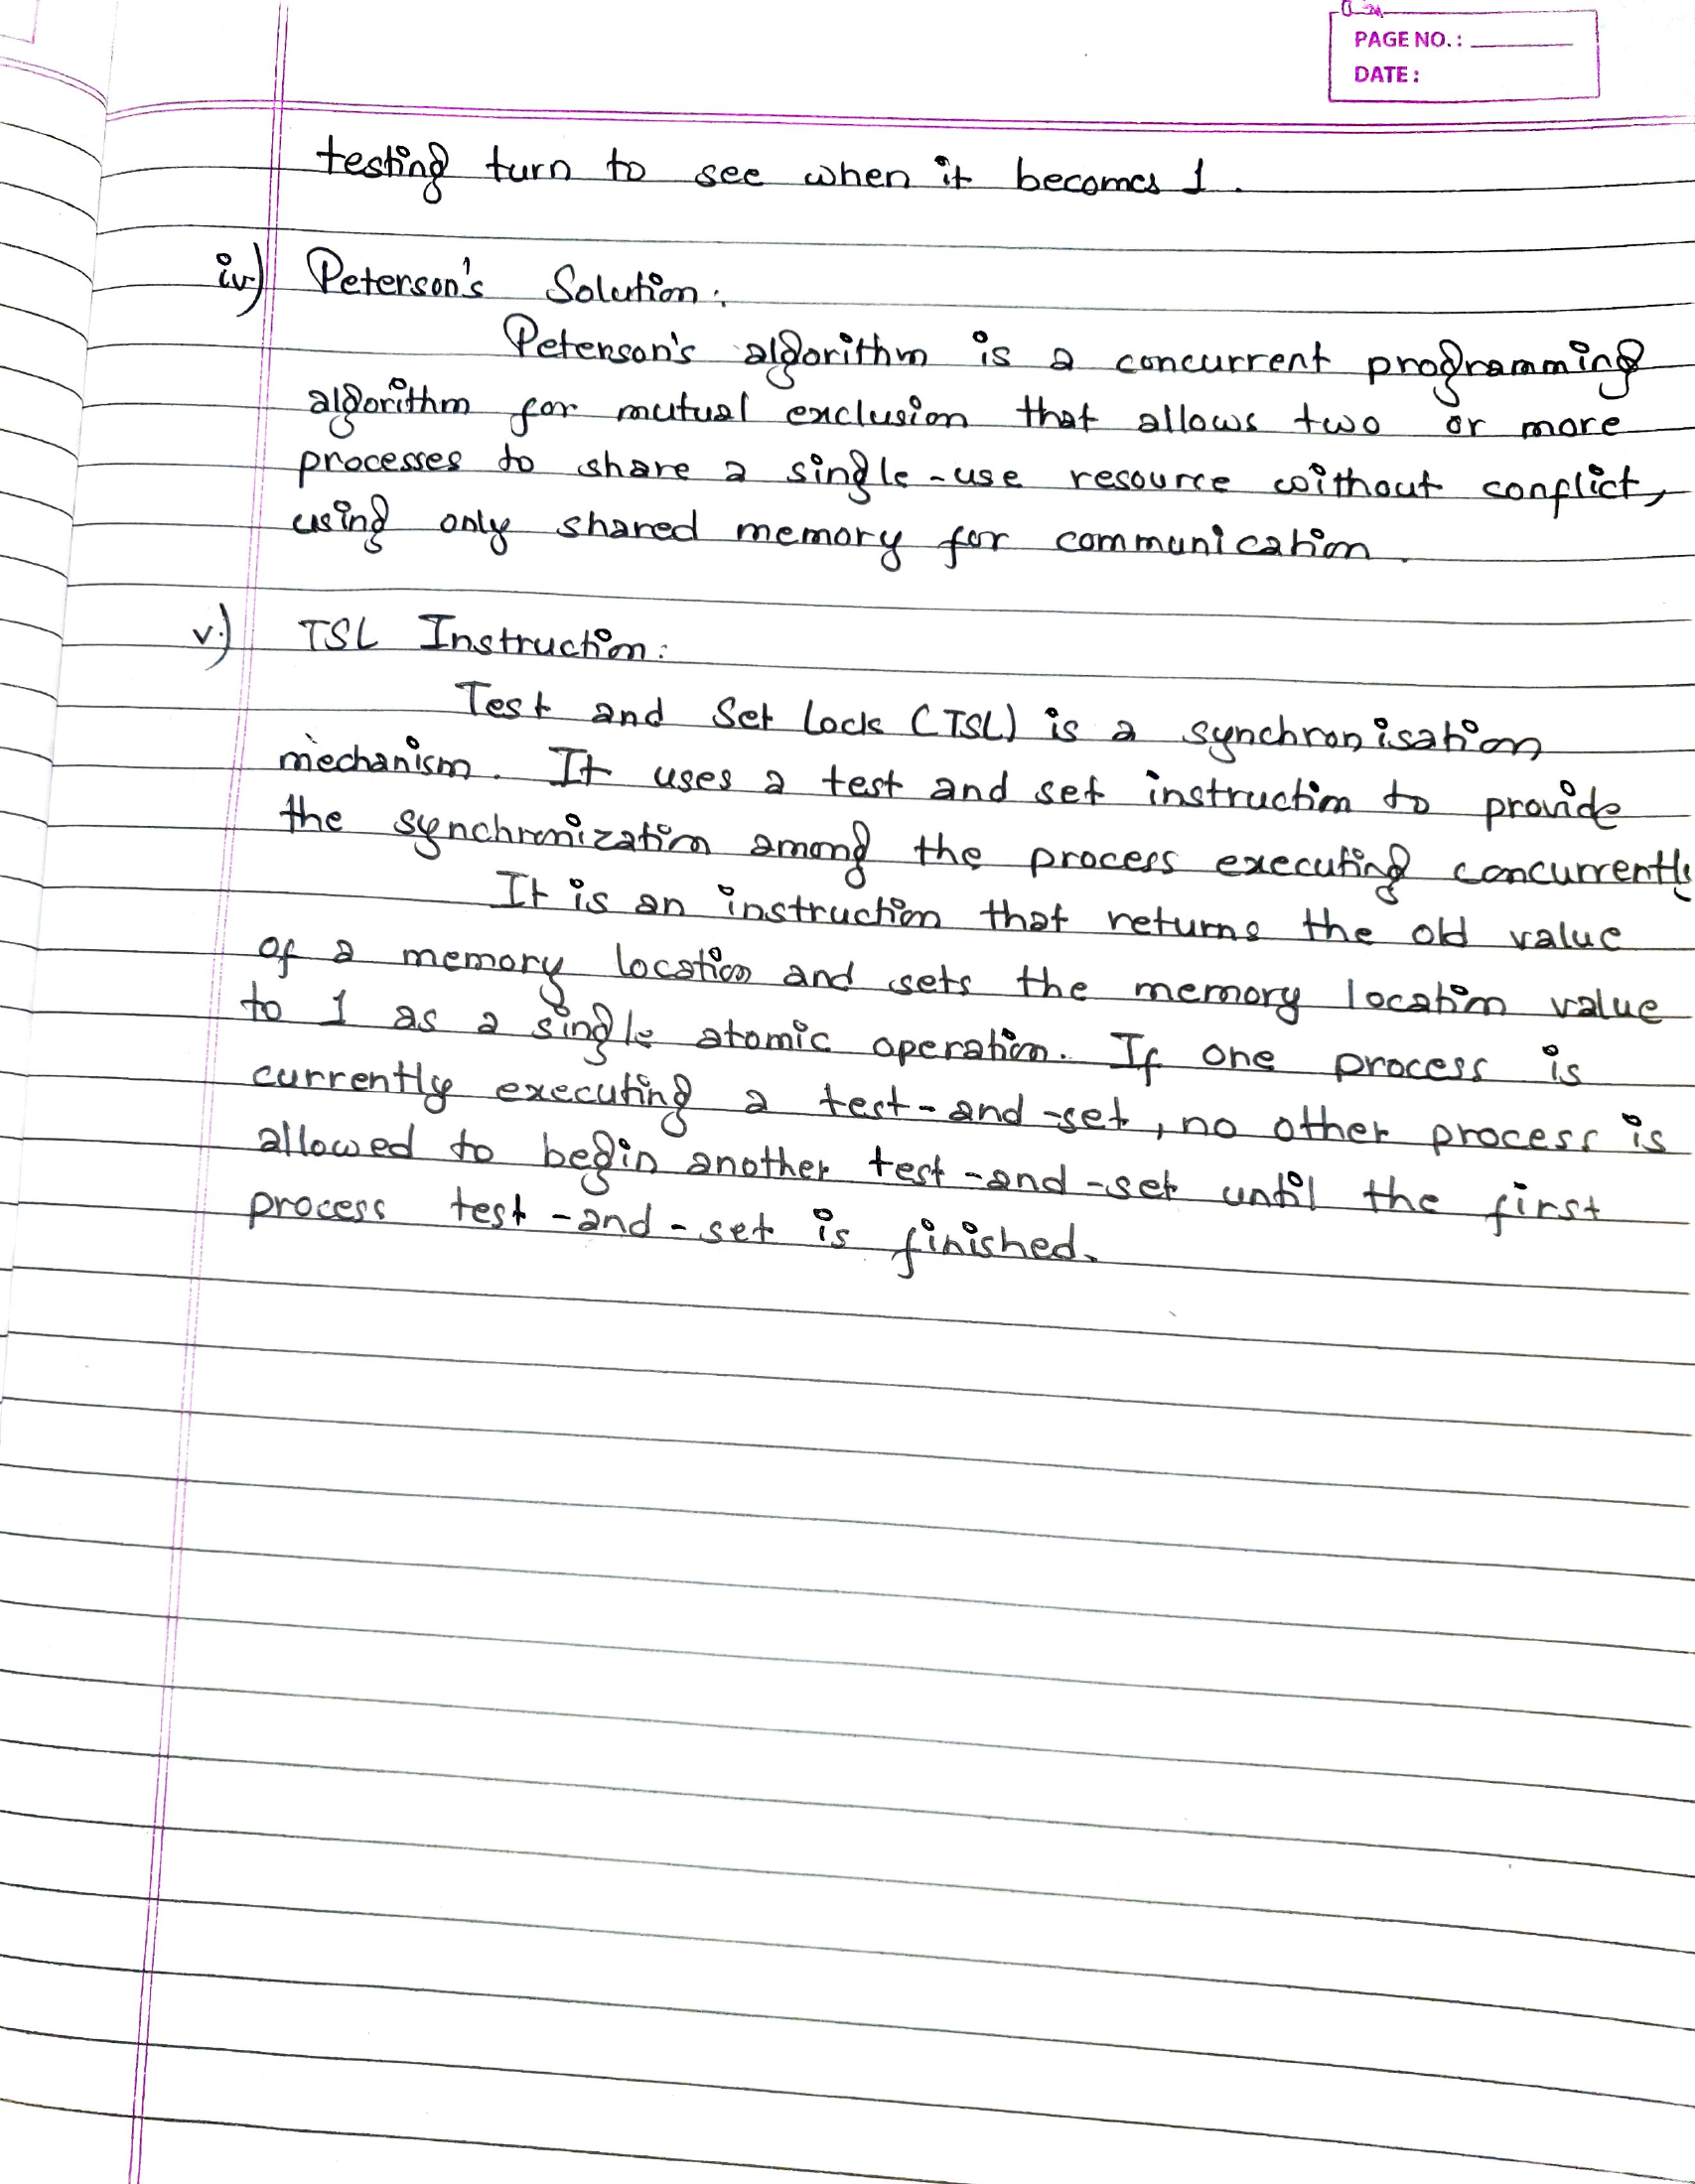 PAGE NO.:
DATE:
testing turn to see when it becomes 1.
iv) Peterson's Solution:
Peterson's algorithm is a concurrent programming
algorithm for mutual exclusion that allows two or more
processes to share a single-use resource without conflict,
using only shared memory for communication.
v.) TSL Instruction:
Test and Set Lock (TSL) is a synchronisation
mechanism. It uses a test and set instruction to provide
the synchronization among the process executing concurrently
It is an instruction that returns the old value
of a memory location and sets the memory location value
to 1 as a single atomic operation. If one process is
currently executing a test-and-set, no other process is
allowed to begin another test-and-set until the first
process test-and-set is finished.